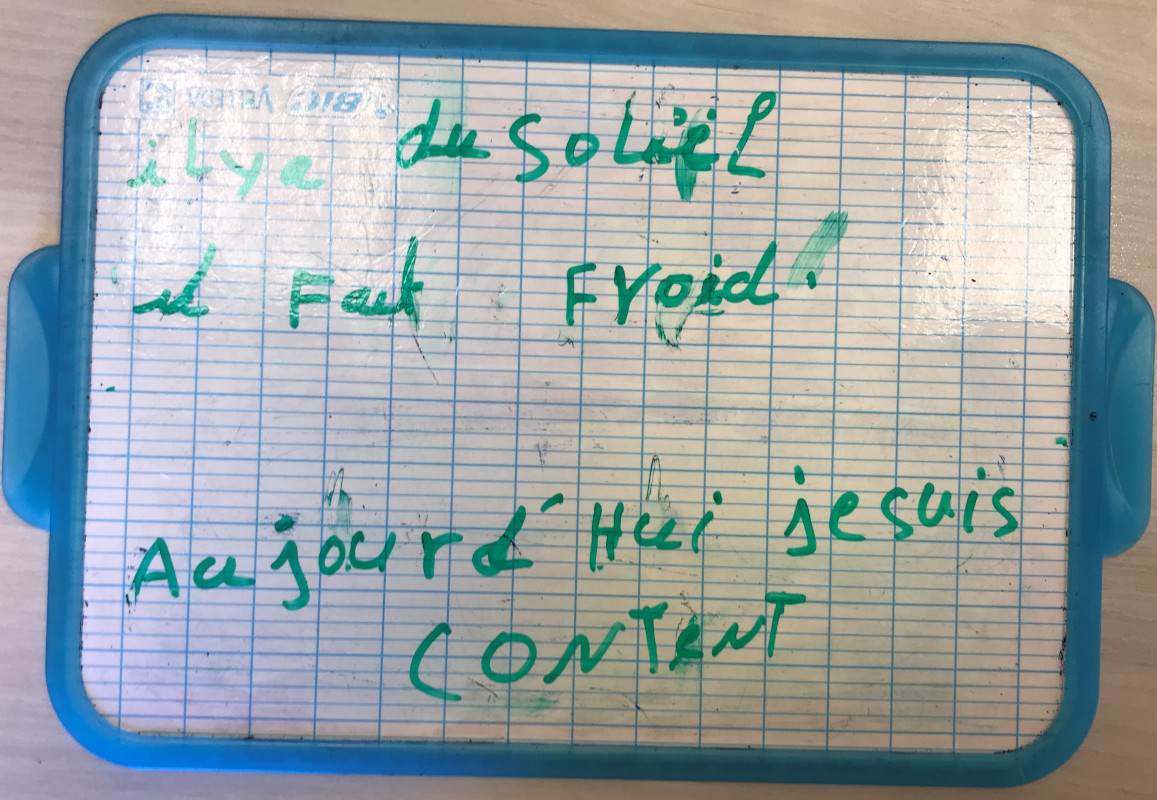 BIC VELLEDA
ilya du soliel
il Fait Froid.
Aujourd'Hui je suis
CONTeNT